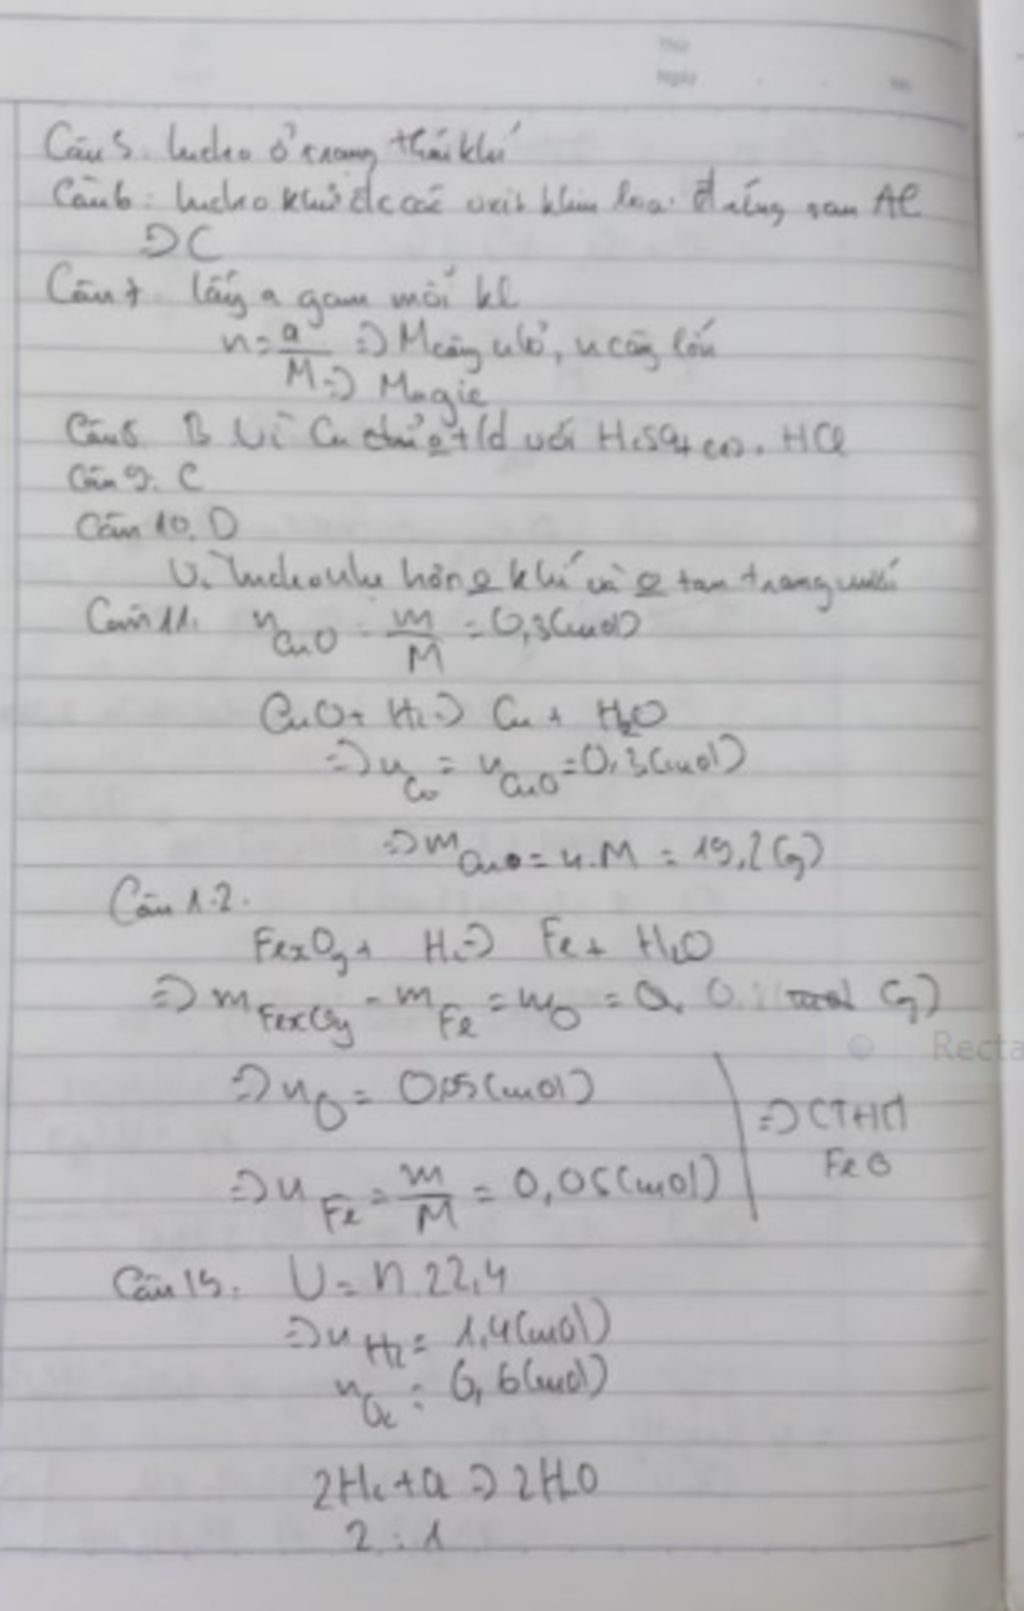 Thứ
Ngày
Câu 5. hidro ở trạng thái khí
Câu 6: hidro khử đc các oxit kim loại đứng sau Al
=> C
Câu 7. lấy a gam mỗi kl
n = a/M => M càng nhỏ, n càng lớn
=> Magie
Câu 8. B Vì Cu t/d với H2SO4, HCl
Câu 9. C
Câu 10. D
Vì hidro nhẹ hơn khí và tan trong nước
Câu 11. nCuO = m/M = 0,3(mol)
CuO + H2 => Cu + H2O
=> nCu = nCuO = 0,3(mol)
=> mCu = n.M = 19,2(g)
Câu 12.
FexOy + H2 => Fe + H2O
=> mFexOy - mFe = mO = 0, (g)
Recta
=> nO = 0,05(mol)
=> CTHH
FeO
=> nFe = m/M = 0,05(mol)
Câu 15. V = n.22,4
=> nH2 = 1,4(mol)
nO2 = 0,6(mol)
2H2 + O2 => 2H2O
2 : 1